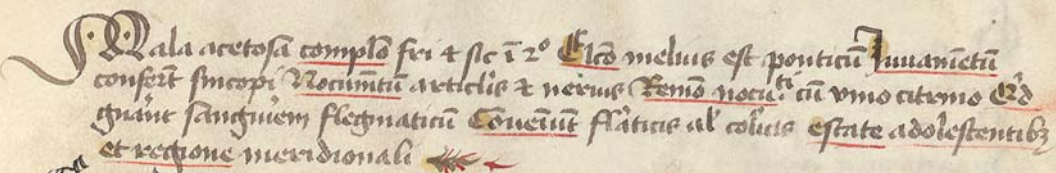 Mala acetosa complo fri ⁊ sic ī 2° Elco melius est ponticū Juuamētū
confert sincopi Nocumtū articlis ⁊ neruis Remo nocuti cū vino citrino Qd
gnāut sanguiem flegmaticū Coueīut flaticis al colicis estate adolescentibꝫ
et regione meridionali